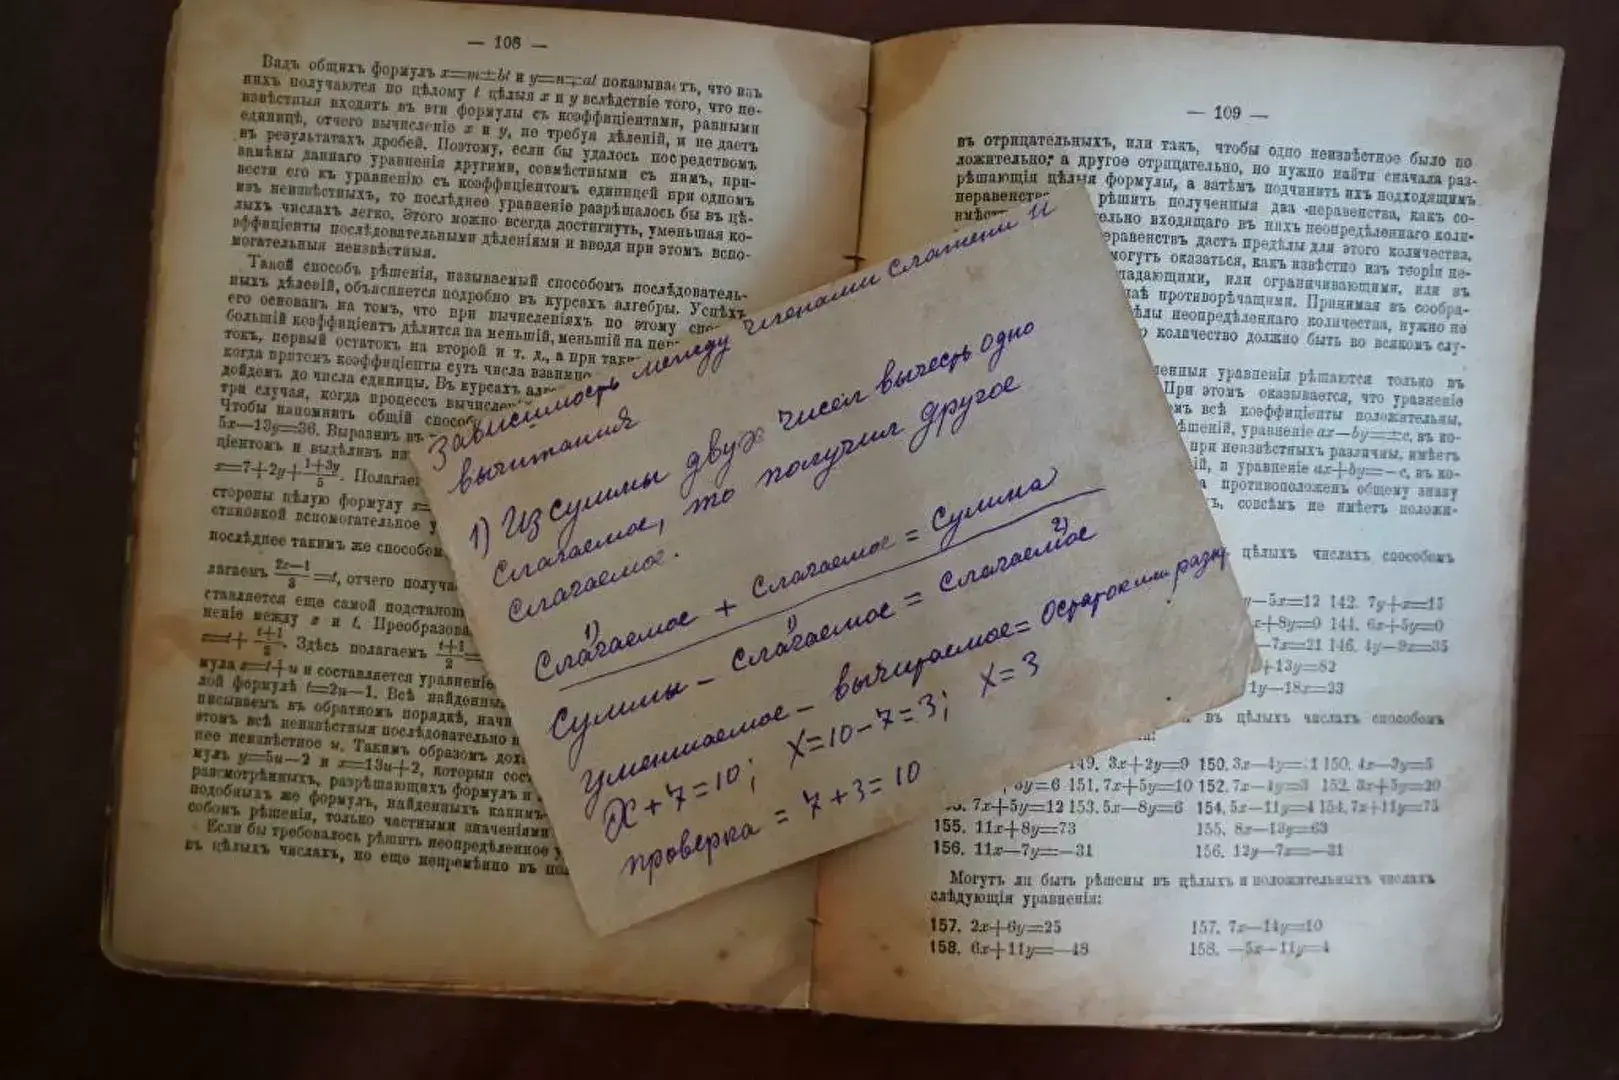 — 108 —
Видъ общихъ формулъ x=m±bt и y=n∓at показываетъ, что изъ
нихъ получаются по цѣлому t цѣлыя x и y вслѣдствіе того, что не-
извѣстныя входятъ въ эти формулы съ коэффиціентами, равными
единицѣ, отчего вычисленіе x и y, не требуя дѣленій, и не даетъ
въ результатахъ дробей. Поэтому, если бы удалось посредствомъ
замѣны даннаго уравненія другими, совмѣстными съ нимъ, при-
вести его къ уравненію съ коэффиціентомъ единицей при одномъ
изъ неизвѣстныхъ, то послѣднее уравненіе разрѣшалось бы въ цѣ-
лыхъ числахъ легко. Этого можно всегда достигнуть, уменьшая ко-
эффиціенты послѣдовательными дѣленіями и вводя при этомъ вспо-
могательныя неизвѣстныя.
Такой способъ рѣшенія, называемый способомъ послѣдователь-
ныхъ дѣленій, объясняется подробно въ курсахъ алгебры. Успѣхъ
его основанъ на томъ, что при вычисленіяхъ по этому
большій коэффиціентъ дѣлится на меньшій, меньшій на
токъ, первый остатокъ на второй и т. д., а при
когда притомъ коэффиціенты суть числа взаимно
дойдемъ до числа единицы. Въ курсахъ
три случая, когда процессъ
Чтобы напомнить общій
5x—13y=36. Выразивъ
ціентомъ и выдѣливъ
x=7+2y+(1+3y)/5. Полагаем
стороны цѣлую формулу
становкой вспомогательное
послѣднее такимъ же способомъ
лагаемъ (2z—1)/3=t, отчего
ставляется еще самой
неніе между z и t.
z=t+(t+1)/2. Здѣсь полагаемъ (t+1)/2
мула z=t+u и составляется уравненіе
лой формулѣ t=2u—1. Всѣ найденны
писываемъ въ обратномъ порядкѣ,
этомъ всѣ неизвѣстныя послѣдовательно
нее неизвѣстное u. Такимъ образомъ
мулъ y=5u—2 и x=13u+2, которыя
разсмотрѣнныхъ, разрѣшающихъ формулъ и
подобныхъ же формулъ, найденныхъ
собомъ рѣшенія, только частными значеніями
Если бы требовалось рѣшить неопредѣленное
въ цѣлыхъ числахъ, но еще непремѣнно въ
Зависимость между членами сложени и
вычитания
1) Из суммы двух чисел вычесть одно
слагаемое, то получил другое
слагаемое.
1)
Слагаемое + слагаемое = сумма
1) 2)
Суммы — слагаемое = слагаемое
уменшаемое — вычитаемое = остаток или разн.
X+7=10; X=10-7=3; X=3
проверка = 7+3=10
— 109 —
въ отрицательныхъ, или такъ, чтобы одно неизвѣстное было по
ложительно, а другое отрицательно, но нужно найти сначала раз-
рѣшающія цѣлыя формулы, а затѣмъ подчинить ихъ подходящимъ
рѣшить полученныя два неравенства, какъ со-
входящаго въ нихъ неопредѣленнаго коли-
неравенствъ дастъ предѣлы для этого количества.
могутъ оказаться, какъ извѣстно изъ теоріи не-
падающими, или ограничивающими, или въ
противорѣчащими. Принимая въ сообра-
неопредѣленнаго количества, нужно не
количество должно быть во всякомъ слу-
уравненія рѣшаются только въ
При этомъ оказывается, что уравненіе
всѣ коэффиціенты положительны,
уравненіе ax—by=±c, въ ко-
при неизвѣстныхъ различны, имѣетъ
и уравненіе ax+by=—c, въ ко-
противоположенъ общему знаку
совсѣмъ не имѣетъ положи-
цѣлыхъ числахъ способомъ
y—5x=12 142. 7y+x=15
x+8y=0 144. 6x+5y=0
—7x=21 146. 4y—9x=35
+13y=82
1y—18x=23
въ цѣлыхъ числахъ способомъ
149. 3x+2y=9 150. 3x—4y=1 150. 4x—3y=5
y=6 151. 7x+5y=10 152. 7x—4y=3 152. 3x+5y=20
7x+5y=12 153. 5x—8y=6 154. 5x—11y=4 154. 7x+11y=75
155. 11x+8y=73 155. 8x—13y=63
156. 11x—7y=—31 156. 12y—7x=—31
Могутъ ли быть рѣшены въ цѣлыхъ и положительныхъ числахъ
слѣдующія уравненія:
157. 2x+6y=25 157. 7x—14y=10
158. 6x+11y=—48 158. —5x—11y=4